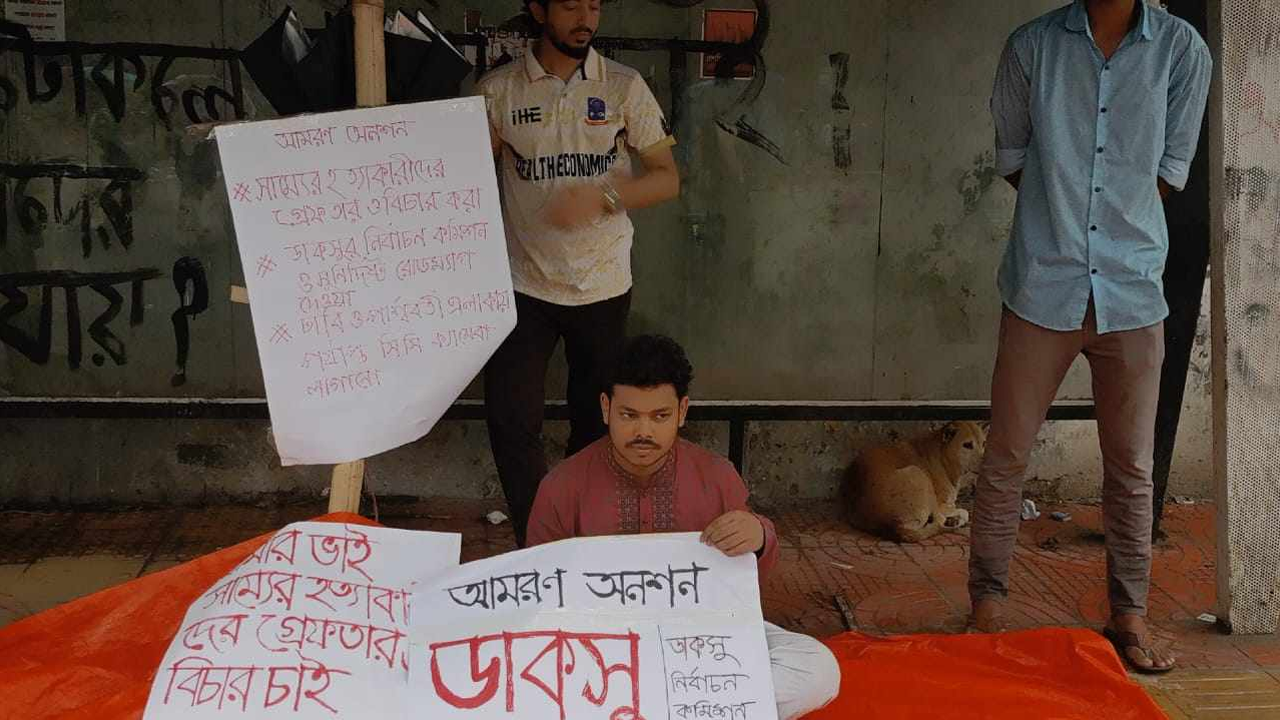 টাকলে
যায়?
আমরণ অনশন
※ সাম্যের হত্যাকারীদের
গ্রেফতার ও বিচার করা
※ ডাকসুর নির্বাচন কমিশন
ও সুনির্দিষ্ট রোডম্যাপ
দেওয়া
※ ঢাবি ও পার্শ্ববর্তী এলাকায়
পর্যাপ্ত সিসি ক্যামেরা
লাগানো
iHE
HEALTH ECONOMICS
মার ভাই
সাম্যের হত্যাকা
দের গ্রেফতার
বিচার চাই
আমরণ অনশন
ডাকসু
ডাকসু
নির্বাচন
কমিশন